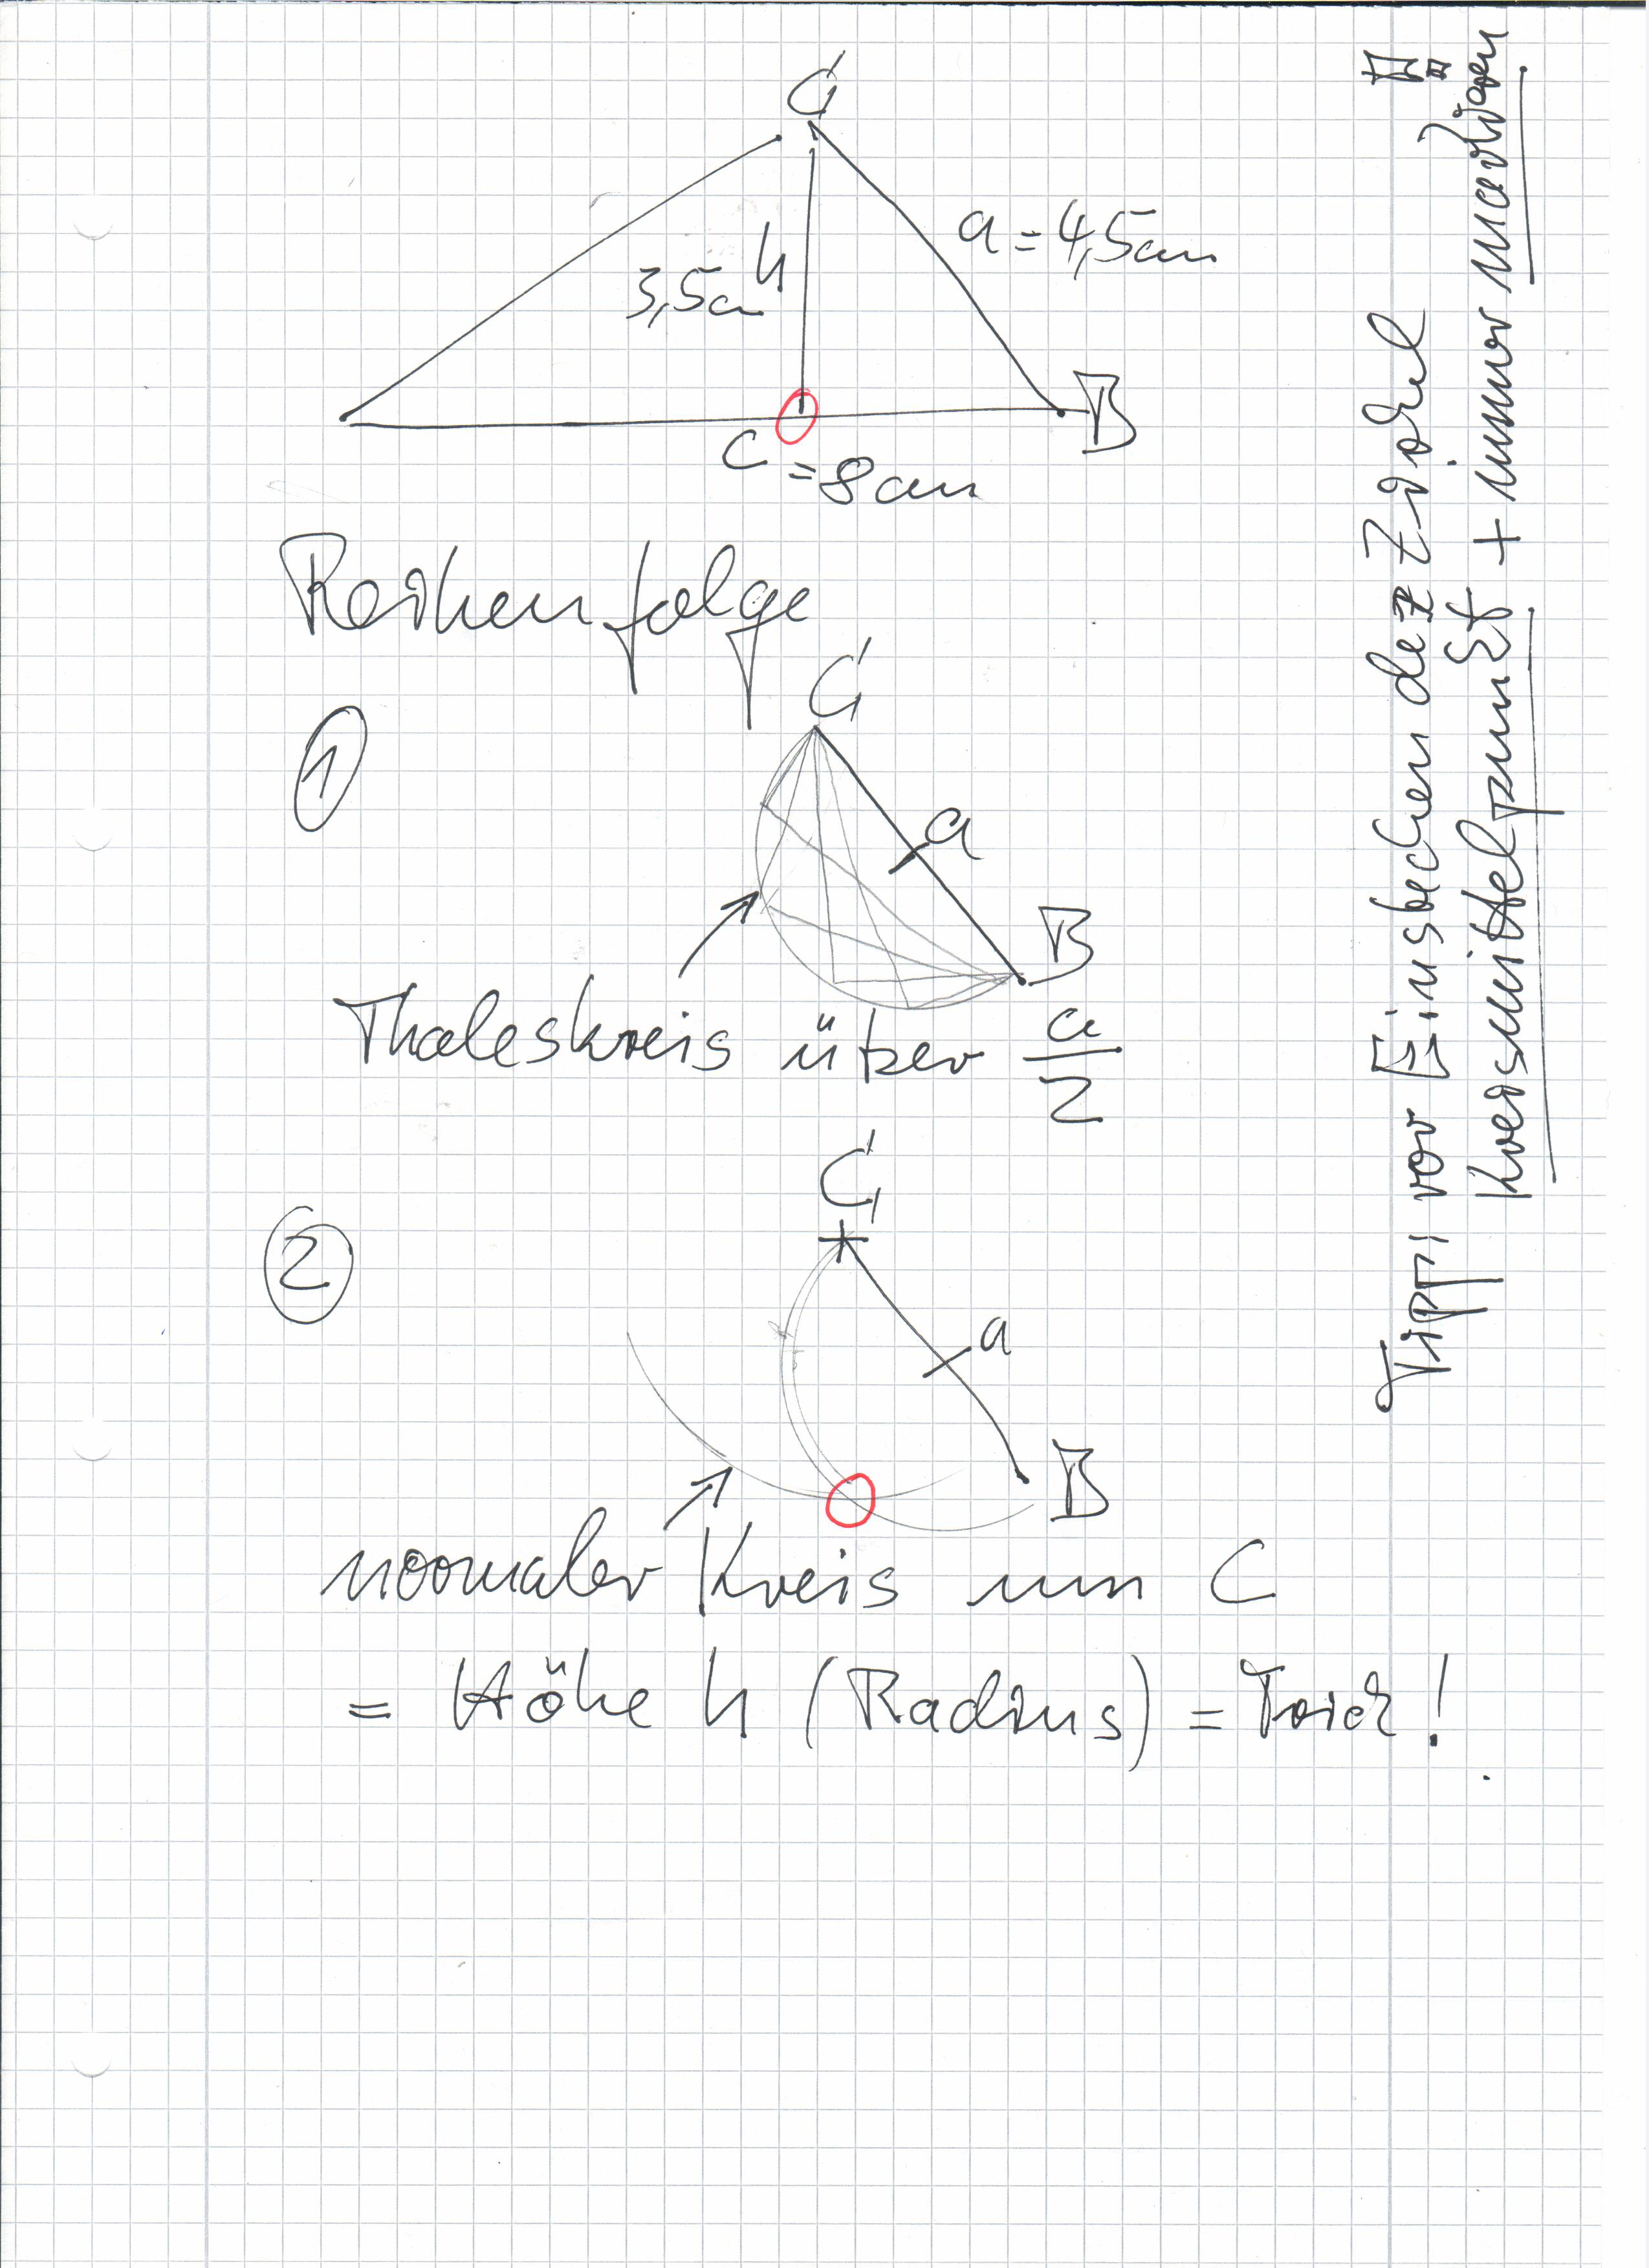 C
a = 4,5cm
h
3,5cm
B
c = 8cm
Reihenfolge
1
C
a
B
Thaleskreis über a/2
2
C
a
B
normaler Kreis um C
= Höhe h (Radius) = Trick!
Tipp: vor Einstechen der Zirkel
Kreismittelpunkt + immer markieren